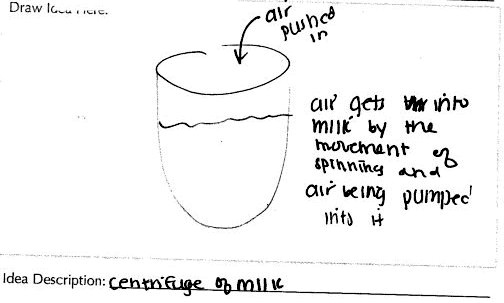 Draw Idea Here:
air
pushed
in
air gets into
milk by the
movement of
spinning and
air being pumped
into it
Idea Description: centrifuge of milk